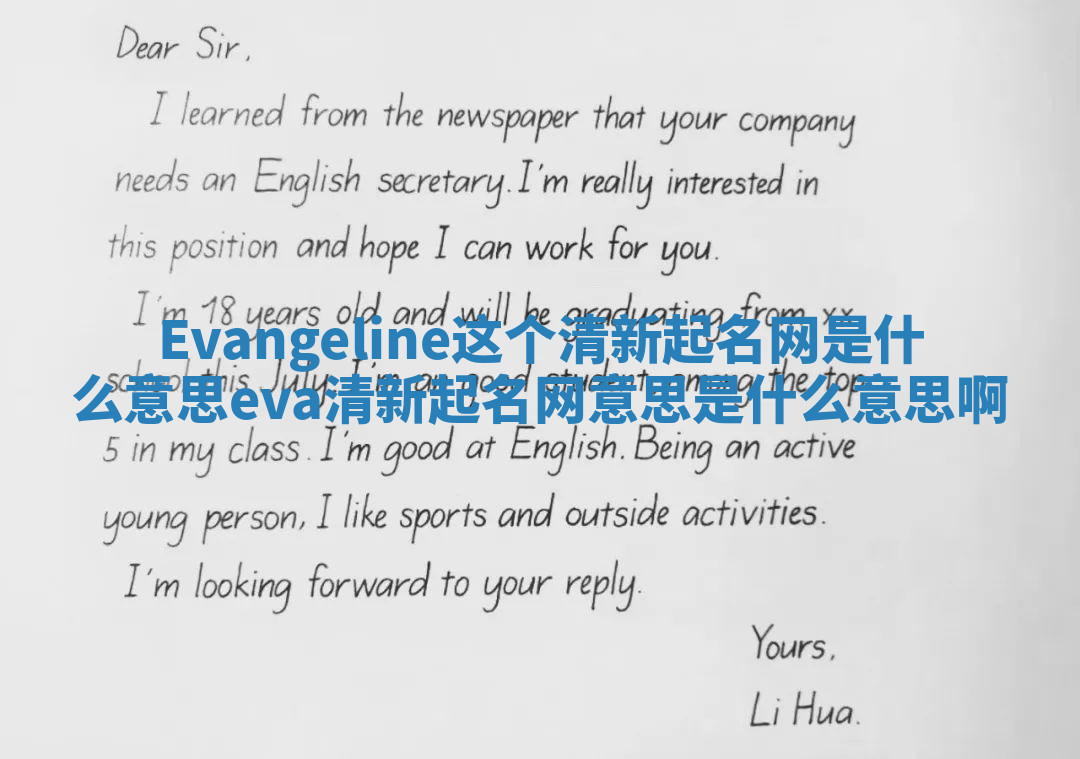 Dear Sir,
I learned from the newspaper that your company
needs an English secretary. I'm really interested in
this position and hope I can work for you.
I'm 18 years old and will be graduating from xx
Evangeline这个清新起名网是什
school this July. I'm a good student among the top
么意思eva清新起名网意思是什么意思啊
5 in my class. I'm good at English. Being an active
young person, I like sports and outside activities.
I'm looking forward to your reply.
Yours,
Li Hua.